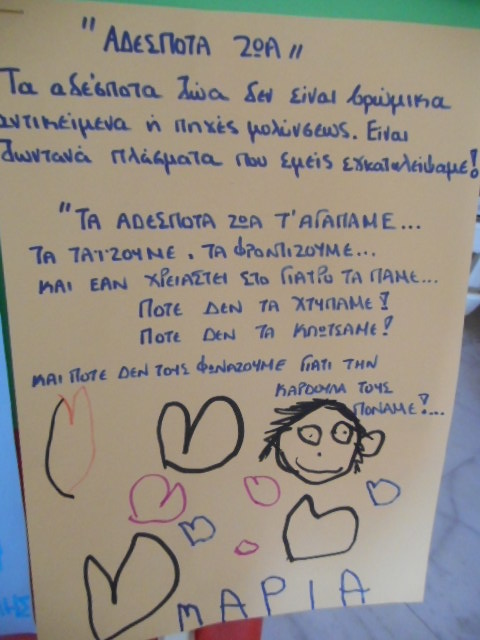 "ΑΔΕΣΠΟΤΑ ΖΩΑ"
Τα αδέσποτα ζώα δεν είναι βρώμικα
αντικείμενα ή πηγές μολύνσεως. Είναι
ζωντανά πλάσματα που εμείς εγκαταλείψαμε!
"ΤΑ ΑΔΕΣΠΟΤΑ ΖΩΑ Τ'ΑΓΑΠΑΜΕ...
ΤΑ ΤΑΪΖΟΥΜΕ, ΤΑ ΦΡΟΝΤΙΖΟΥΜΕ...
ΚΑΙ ΕΑΝ ΧΡΕΙΑΣΤΕΙ ΣΤΟ ΓΙΑΤΡΟ ΤΑ ΠΑΜΕ...
ΠΟΤΕ ΔΕΝ ΤΑ ΧΤΥΠΑΜΕ!
ΠΟΤΕ ΔΕΝ ΤΑ ΚΛΩΤΣΑΜΕ!
ΚΑΙ ΠΟΤΕ ΔΕΝ ΤΟΥΣ ΦΩΝΑΖΟΥΜΕ ΓΙΑΤΙ ΤΗΝ
ΚΑΡΔΟΥΛΑ ΤΟΥΣ
ΠΟΝΑΜΕ!...
ΜΑΡΙΑ